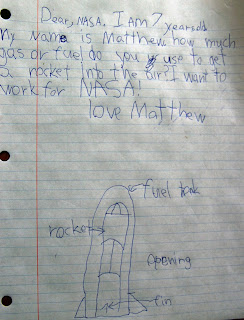 Dear, NASA. I am 7 years old
My name is Matthew how much
gas or fuel do you use to get
a rocket into the air? I want to
work for NASA!
love Matthew
fuel tank
rocket
opening
fin